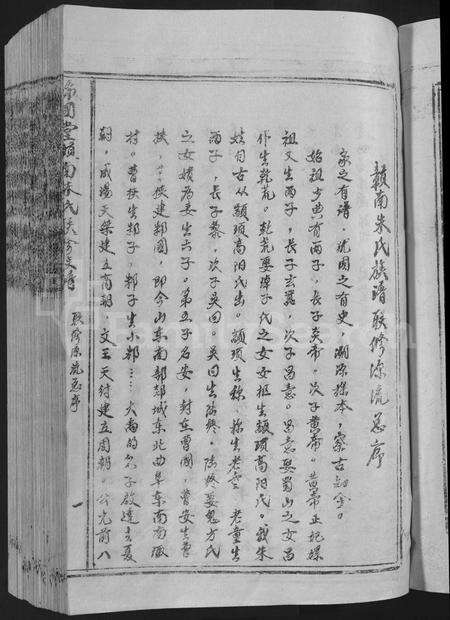 赣南朱氏族谱联修源流总序
家之有谱，犹国之有史，溯源探本，察古知今。
始祖少典有两子，长子炎帝，次子黄帝。黄帝正妃嫘
祖又生两子，长子玄嚣，次子昌意。昌意娶蜀山之女昌
仆生乾荒。乾荒娶淖子氏之女女枢生颛顼高阳氏。我朱
姓自古从颛顼高阳氏出。颛顼生称，称生老童，老童生
两子，长子黎，次子吴回。吴回生陆终。陆终娶鬼方氏
之女女嬇为妻生六子。第五子名安，封在曹国，曹安生
挟，挟建邾国，即今山东南部邹城东北曲阜东南南陬
村。曹挟生邾子，邾子生小邾
启建立夏
朝，成汤灭桀建立商朝，文王灭纣建立周朝。公元前八
赣南朱氏联修族谱
联修源流总序
一